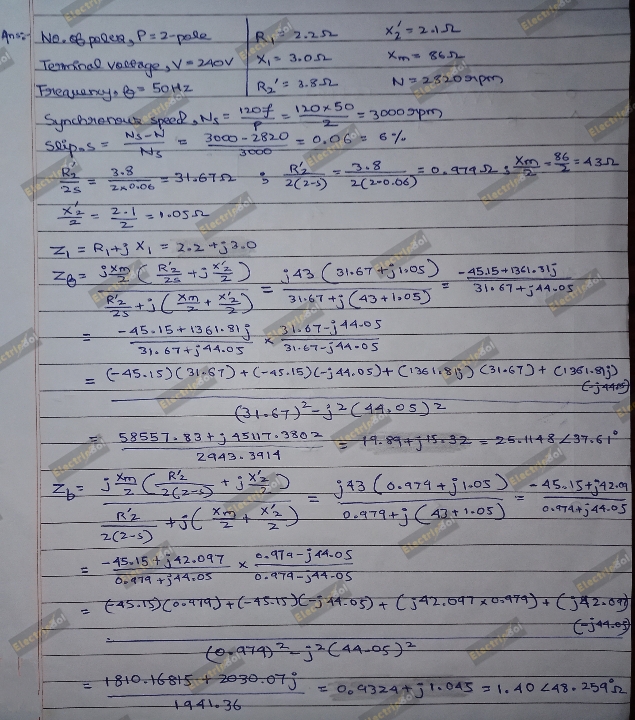 Ans:- No. of poles, P = 2-pole R₁ = 2.2Ω X₂' = 2.1Ω
Terminal voltage, V = 240V X₁ = 3.0Ω Xm = 86Ω
Frequency, f = 50Hz R₂' = 3.8Ω N = 2820rpm
Synchronous speed, Ns = 120f/P = 120×50/2 = 3000rpm
Slip,s = Ns-N/Ns = 3000-2820/3000 = 0.06 = 6%
R₂'/2s = 3.8/2×0.06 = 31.67Ω ; R₂'/2(2-s) = 3.8/2(2-0.06) = 0.979Ω ; Xm/2 = 86/2 = 43Ω
X₂'/2 = 2.1/2 = 1.05Ω
Z₁ = R₁+jX₁ = 2.2+j3.0
Zf = jXm/2 (R₂'/2s + jX₂'/2) / R₂'/2s + j(Xm/2 + X₂'/2) = j43(31.67+j1.05) / 31.67+j(43+1.05) = -45.15+1361.81j / 31.67+j44.05
= -45.15+1361.81j / 31.67+j44.05 × 31.67-j44.05 / 31.67-j44.05
= (-45.15)(31.67)+(-45.15)(-j44.05)+(1361.81j)(31.67)+(1361.81j)(-j44.05)
(31.67)²-j²(44.05)²
= 58557.83+j45117.3802 / 2943.3914 = 19.89+j15.32 = 25.1148∠37.61°
Zb = jXm/2 (R₂'/2(2-s) + jX₂'/2) / R₂'/2(2-s) + j(Xm/2 + X₂'/2) = j43(0.979+j1.05) / 0.979+j(43+1.05) = -45.15+j42.09 / 0.979+j44.05
= -45.15+j42.097 / 0.979+j44.05 × 0.979-j44.05 / 0.979-j44-05
= (-45.15)(0.979)+(-45.15)(-j44.05)+(j42.097×0.979)+(j42.097)(-j44.05)
(0.979)²-j²(44.05)²
= 1810.16815+2030.07j / 1941.36 = 0.9324+j1.045 = 1.40∠48.259°Ω